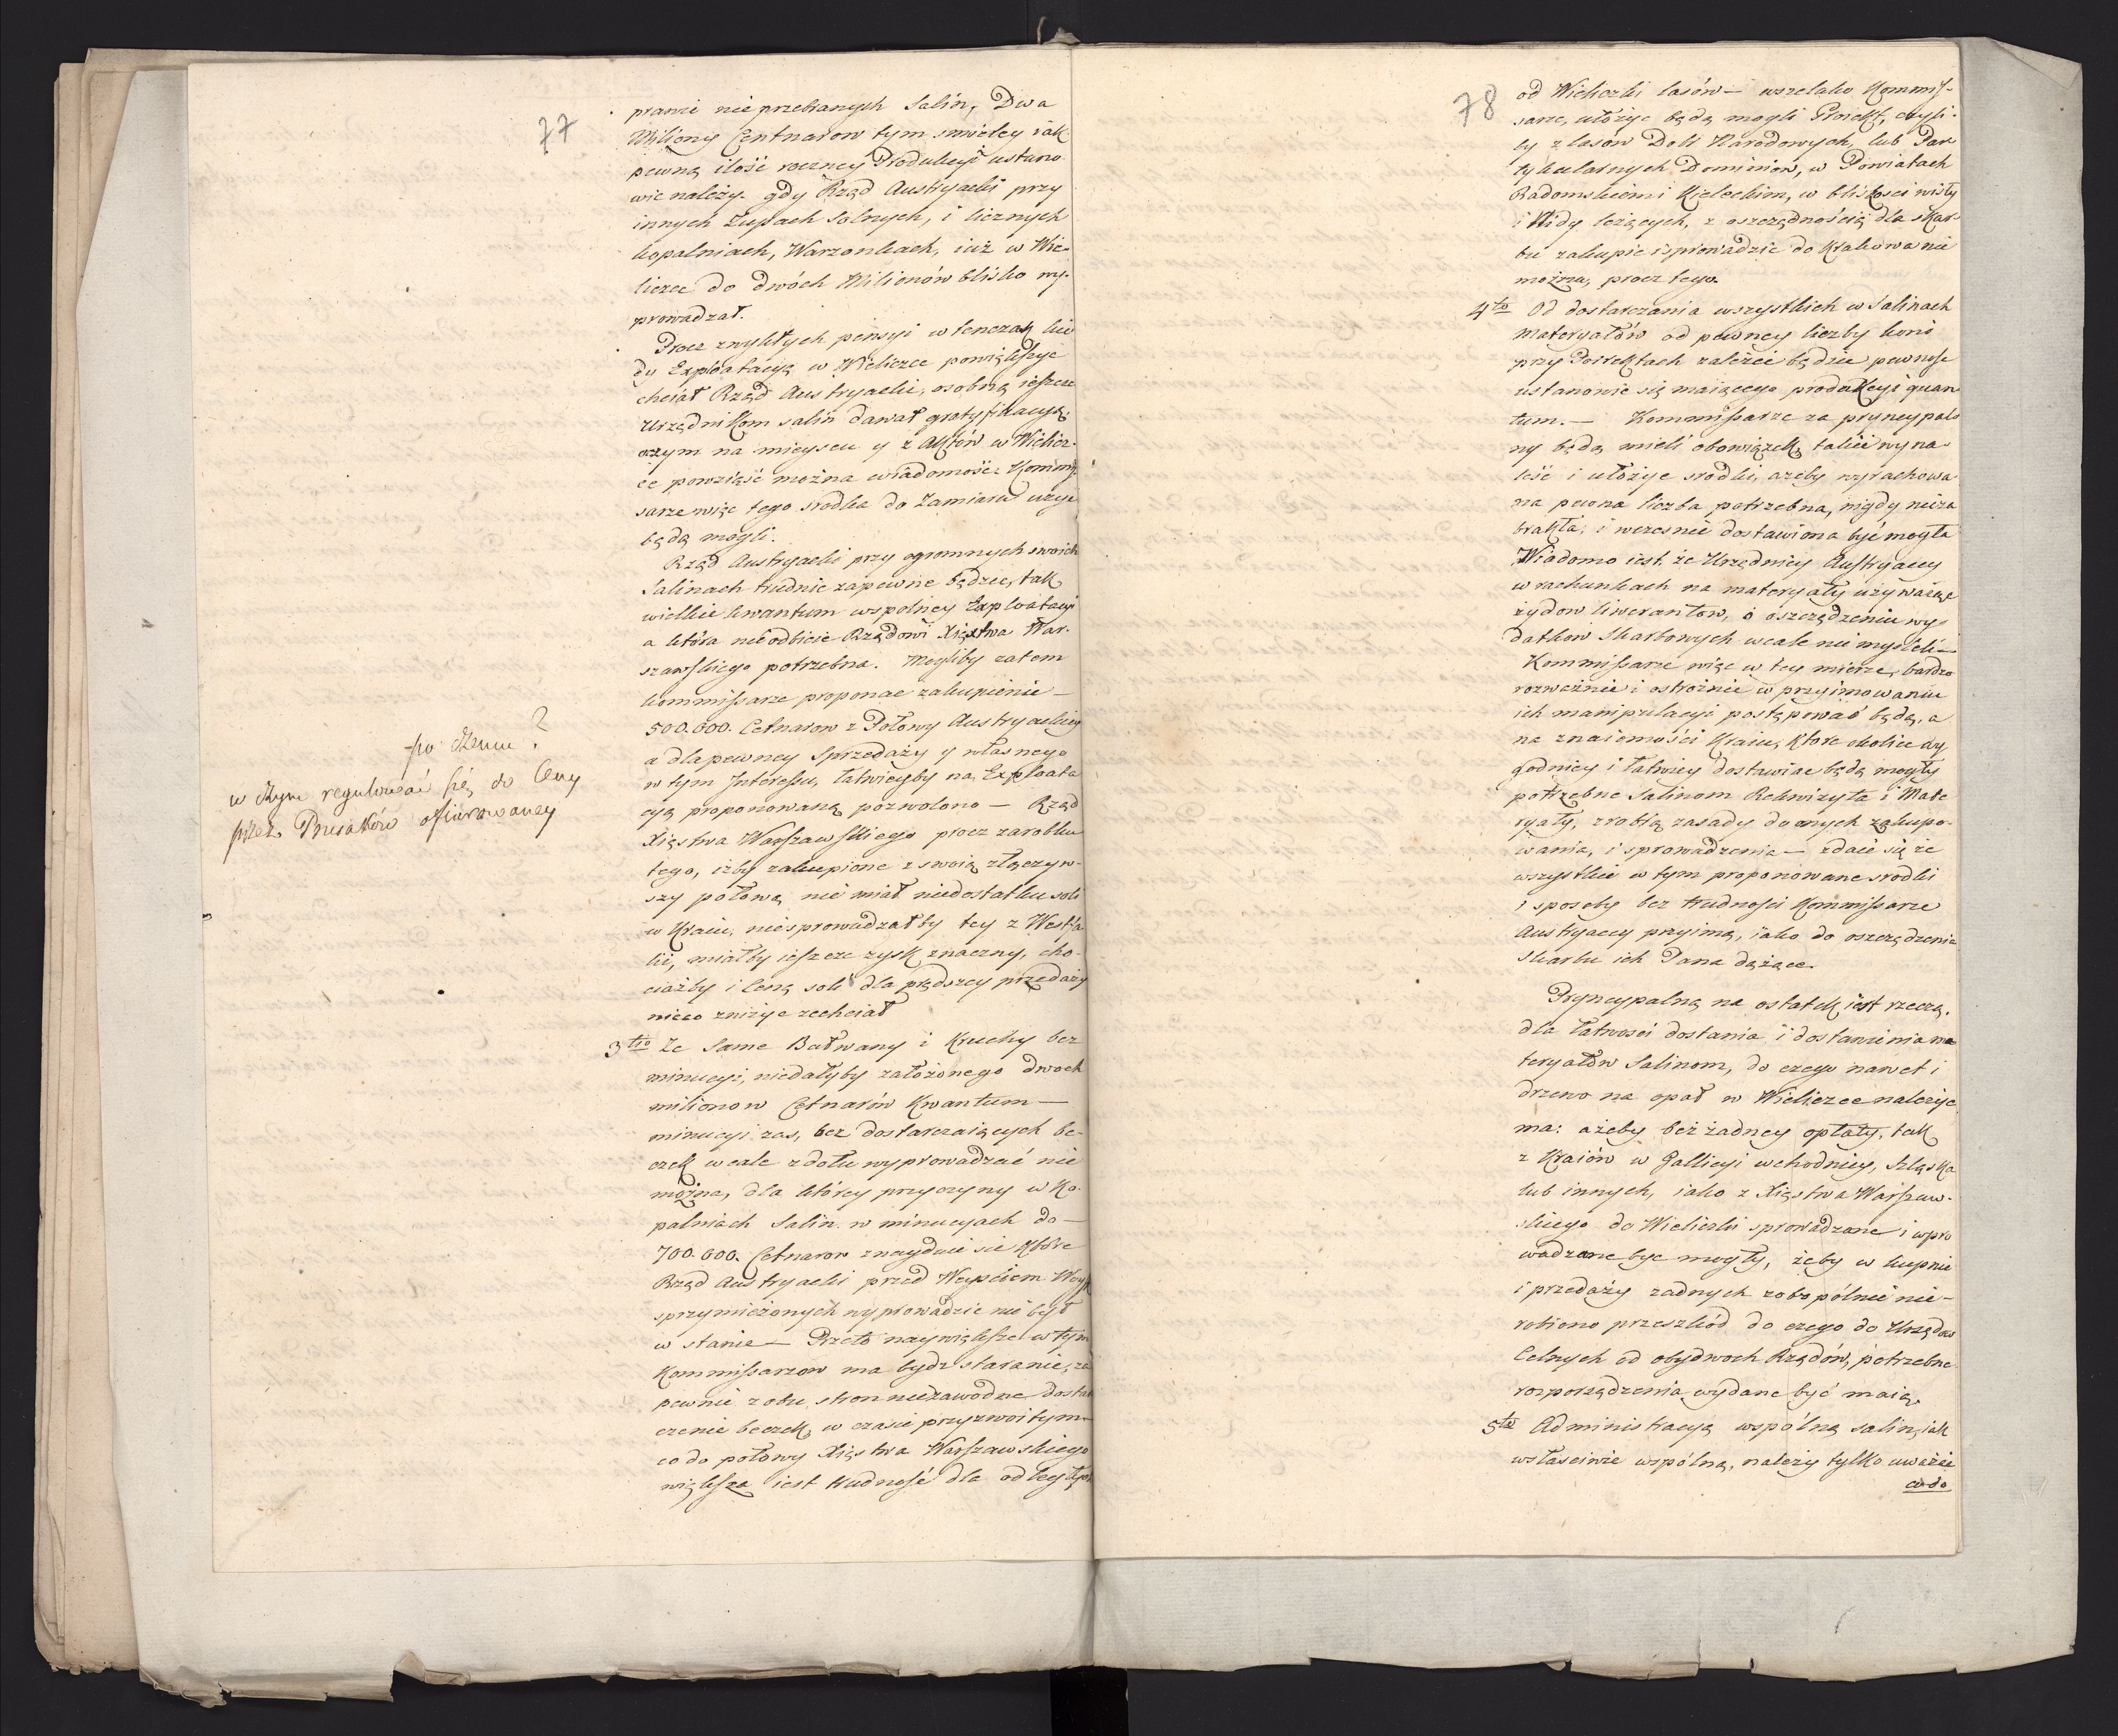 77
prawie nieprzebranych Salin, Dwa
Miliony Centnarow tym smieley iak
pewną ilość roczney Produkcyi ustano
wic należy. gdy Rząd Austryacki przy
innych Żupach Solnych, i licznych
kopalniach, Warzonkach, iuż w Wie-
liczce do dwóch Milionów blisko wy-
prowadzał.
Procz zwykłych pensyi wtenczas kie
dy Exploatacyą w Wieliczce powiększyc
chciał Rząd Austryacki, osobną ieszcze
Urzędnikom salin dawał gratyfikacyą,
oczym na mieyscu y z Aktów w Wielicz-
ce powziąść można wiadomość. Kommis
sarze więc tego srodka do Zamiaru użyc
będą mogli.
Rząd Austryacki przy ogromnych swoich
Salinach trudnic zapewne będzie, tak
wielkie kwantum wspolney Exploatacyi
a która nieodbicie Rządowi Xięstwa War-
szawskiego potrzebna. Mogliby zatem
kommissarze proponac zakupienie —
500.000. Cetnarow z Połowy Austryackiey
a dla pewney Sprzedaży y własnego
w tym Interessu, łatwieyby na Exploata
cyą proponowaną pozwolono — Rząd
Xięstwa Warszawskiego procz zarobku
tego, iżby zakupione z swoią złączyw-
szy połową, nie miał niedostatku soli
w Kraiu, niesprowadzałby tey z Westfa
lii, miałby ieszcze zysk znaczny, cho-
ciażby i Cenę soli dla prędszey przedaży
nieco zniżyc zechciał
po czemu?
w czym regulować się do Ceny
przez Prusaków ofiarowaney
3tio Że same Bałwany i Kruchy bez
minucyi, niedałyby założonego dwoch
milionow Cetnarów Kwantum —
minucyi zas, bez dostarczaiących be-
czek wcale z dołu wyprowadzać nie
można, dla którey przyczyny w Ko-
palniach Salin w minucyach do —
700.000. Cetnarow znayduie sie które
Rząd Austryacki przed Weyściem Woysk
sprzymierzonych wyprowadzic nie był
w stanie — Przeto naywiększe w tym
Kommissarzow ma bydz staranie, za
pewnie z obu stron niezawodne dostar
czenie beczek, w czasie przyzwoitym —
co do połowy Xięstwa Warszawskiego
większa iest trudność dla odległych
78
od Wieliczki lasów — wszelako Kommis-
sarze, ułożyc będą mogli Proiekt, czyli-
by z lasów Dóbr Narodowych, lub Par
tykularnych Dominiow, w Powiatach
Radomskiem i Kieleckim, w bliskości wisły
i Nidy leżących, z oszczędnością dla skar-
bu zakupic i sprowadzic do Krakowa nie
można, procz tego.
4to Od dostarczania wszystkich w Salinach
Materyałów od pewney liczby koni
przy Poirektach zależeć będzie pewność
ustanowic się maiącego produkcyi quan
tum. — Kommissarze za pryncypal-
ny będą mieli obowiązek, takie wyna
leść i ułożyc srodki, ażeby wyrachowa
na pewna liczba potrzebna, nigdy nieza
brakła, i wczesnie dostawiona być mogła
Wiadomo iest że Urzędnicy Austryaccy
w rachunkach na materyały używaiąc
żydow liwerantow, o oszczędzeniu wy-
datkow Skarbowych wcale nie mysleli —
Kommissarze więc w tey mierze, bardzo
rozważnie i ostrożnie w przyimowaniu
ich manipulacyi postępować będą, a
na znaiomości Kraiu, które okolice wy
godniey i łatwiey dostawiac będą mogły
potrzebne Salinom Rekwizyta i Mate
ryały, zrobią zasady do onych zakupo-
wania, i sprowadzenia — zdaie się że
wszystkie w tym proponowane srodki
i sposoby bez trudności Kommissarze
Austryaccy przyimą, iako do oszczędzenia
Skarbu ich Pana dążące.
Pryncypalną na ostatek iest rzeczą,
dla łatwosci dostania i dostawienia ma
teryałów Salinom, do czego nawet i
drzewo na opał w Wieliczce należyc
ma: ażeby bez żadney opłaty, tak
z Kraiów w Gallicyi wchodniey, Szląska
lub innych, iako z Xięstwa Warszaw-
skiego do Wieliczki sprowadzane i wpro
wadzane byc mogły, żeby w kupnie
i przedaży żadnych zobopólnie nie-
robiono przeszkód do czego do Urzędow
Celnych od obydwoch Rządów, potrzebne
rozporządzenia wydane być maią.
5to Administracyą wspólną salin, iak
własciwie wspólną, należy tylko uważac
co do